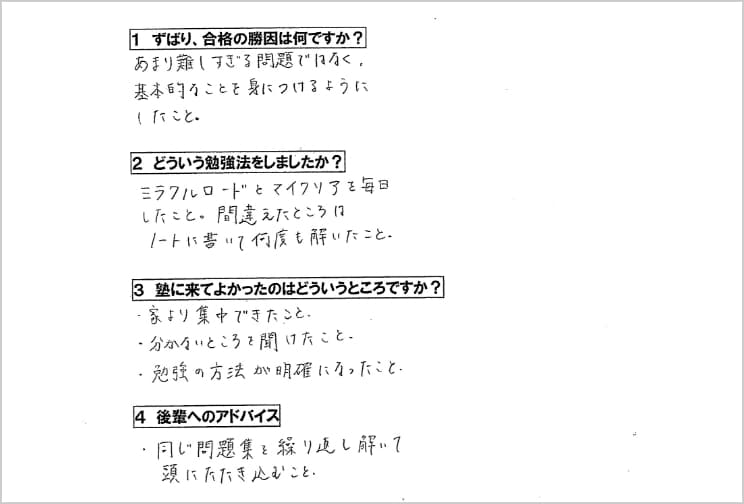 1 ずばり、合格の勝因は何ですか？
あまり難しすぎる問題ではなく、
基本的なことを身につけるように
したこと。
2 どういう勉強法をしましたか？
ミラクルロードとマイクリアを毎日
したこと。間違えたところは
ノートに書いて何度も解いたこと。
3 塾に来てよかったのはどういうところですか？
・家より集中できたこと.
・分かないところを聞けたこと.
・勉強の方法が明確になったこと.
4 後輩へのアドバイス
・同じ問題集を繰り返し解いて
頭にたたき込むこと.